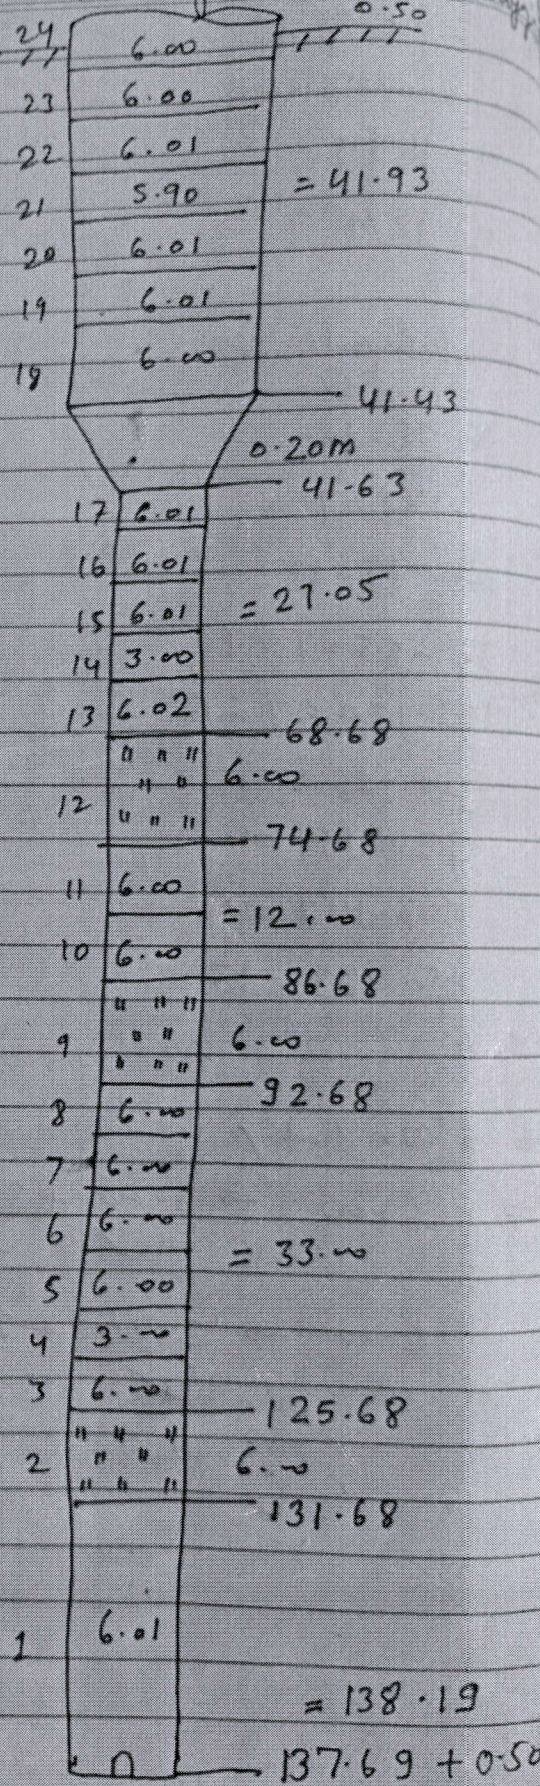 0.50
24 6.00
23 6.00
22 6.01
= 41.93
21 5.90
20 6.01
19 6.01
18 6.00
41.43
0.20m
41.63
17 6.01
16 6.01
= 27.05
15 6.01
14 3.00
13 6.02
68.68
6.00
12
74.68
11 6.00
= 12.00
10 6.00
86.68
9 6.00
92.68
8 6.00
7 6.00
6 6.00
= 33.00
5 6.00
4 3.00
3 6.00
125.68
2 6.00
131.68
1 6.01
= 138.19
137.69 + 0.50